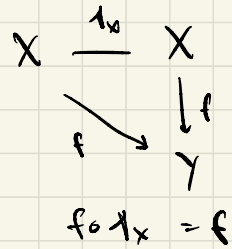 1ₓ
X X
f f
Y
f ∘ 1ₓ = f